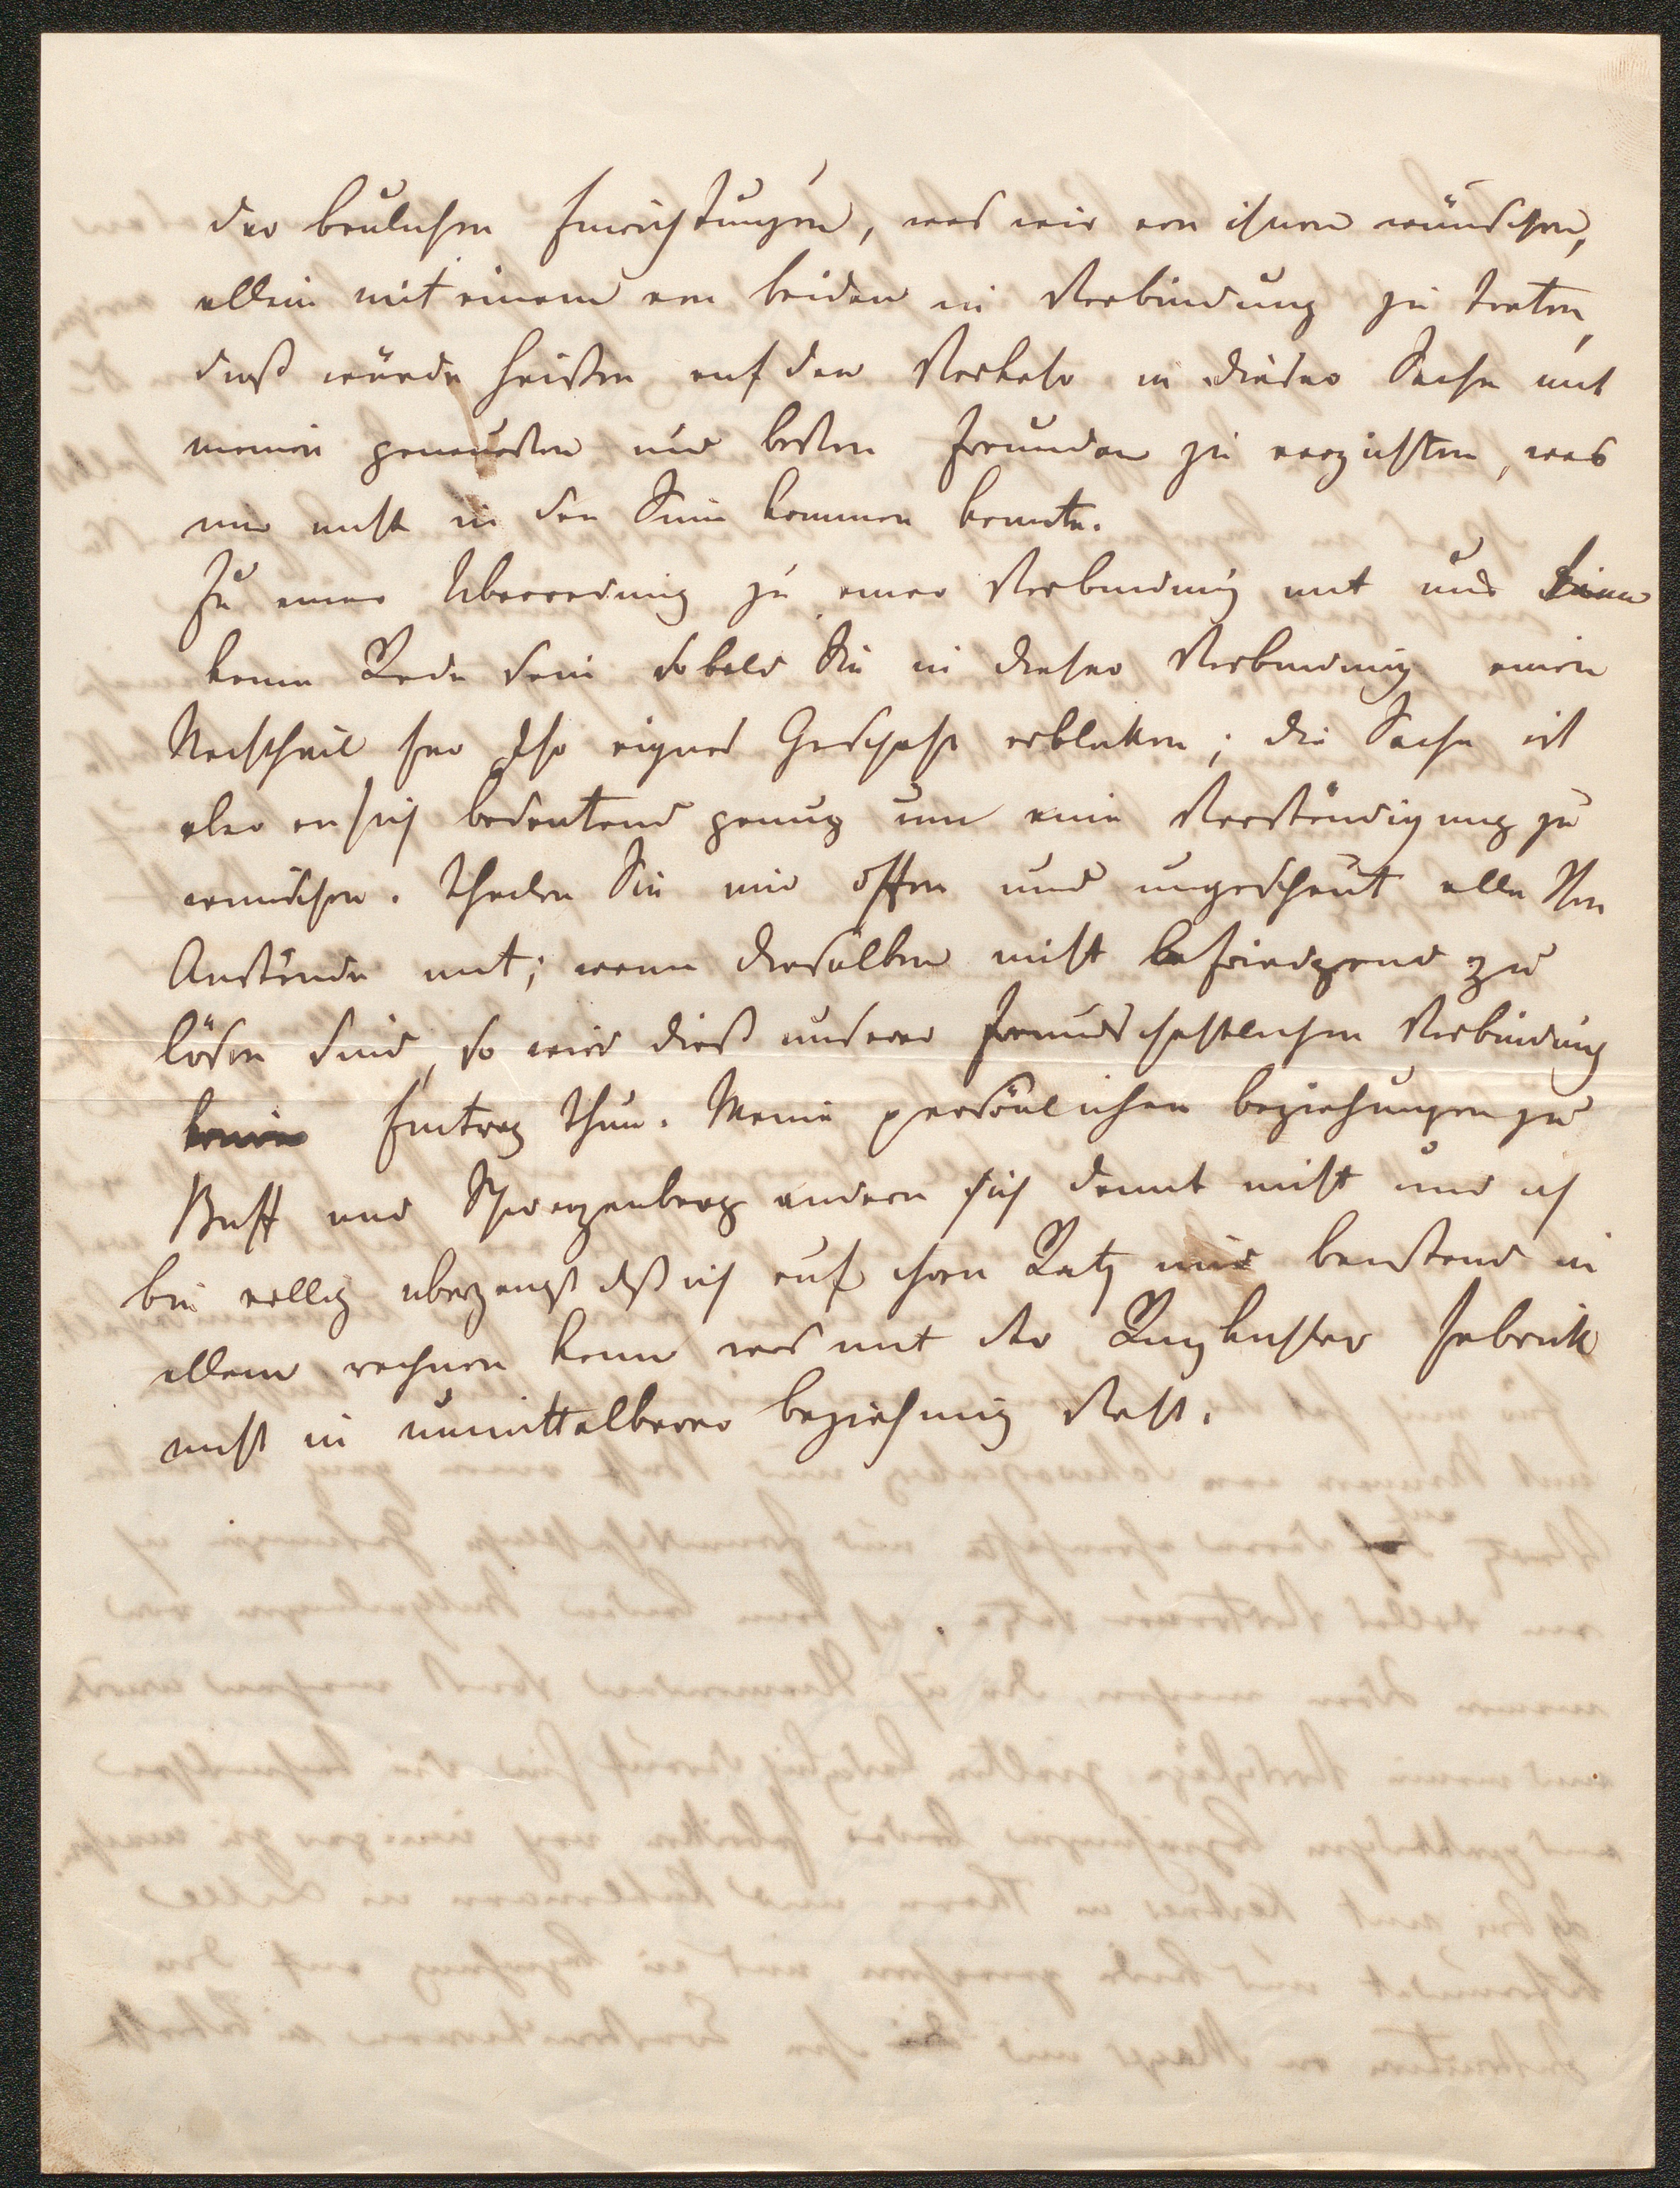 der baulichen Einrichtungen, was wir von ihnen wünschen,
allein mit einem von beiden in Verbindung zu treten,
dieß würde heißen auf den Verkehr in dieser Sache mit
meinen genauesten und besten Freunden zu verzichten, was
mir nicht in den Sinn kommen konnte.
Zu einer Überredung zu einer Verbindung mit uns kann
keine Rede sein sobald Sie in dieser Verbindung einen
Nachtheil für Ihr eignes Geschäft erblicken; die Sache ist
aber an sich bedeutend genug um eine Verständigung zu
wünschen. Theilen Sie mir offen und ungescheut alle Ihre
Anstände mit; wenn dieselben nicht befriedigend zu
lösen sind, so wird dieß unserer freundschaftlichen Verbindung
keinen Eintrag thun. Meine persönlichen beziehungen zu
Buff und Schwarzenberg andern sich damit nicht und ich
bin vollig uberzeugt daß ich auf ihren Rath und beistand in
allem rechnen kann was mit der Ringkuhler Fabrik
nicht in unmittelbarer beziehung steht.